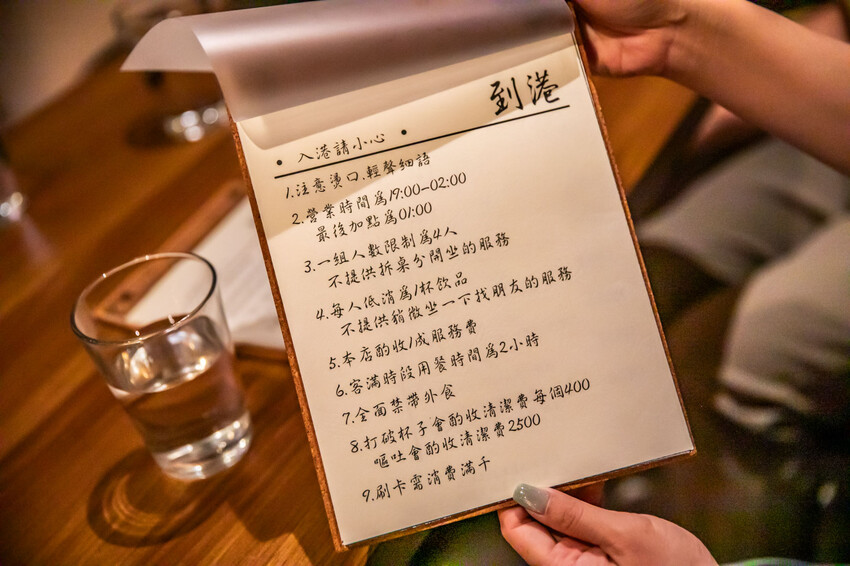 到港
• 入港請小心 •
1.注意燙口.輕聲細語
2.營業時間為19:00-02:00
最後加點為01:00
3.一組人數限制為4人
不提供拆桌分開坐的服務
4.每人低消為1杯飲品
不提供稍微坐一下找朋友的服務
5.本店酌收1成服務費
6.客滿時段用餐時間為2小時
7.全面禁帶外食
8.打破杯子會酌收清潔費每個400
嘔吐會酌收清潔費2500
9.刷卡需消費滿千